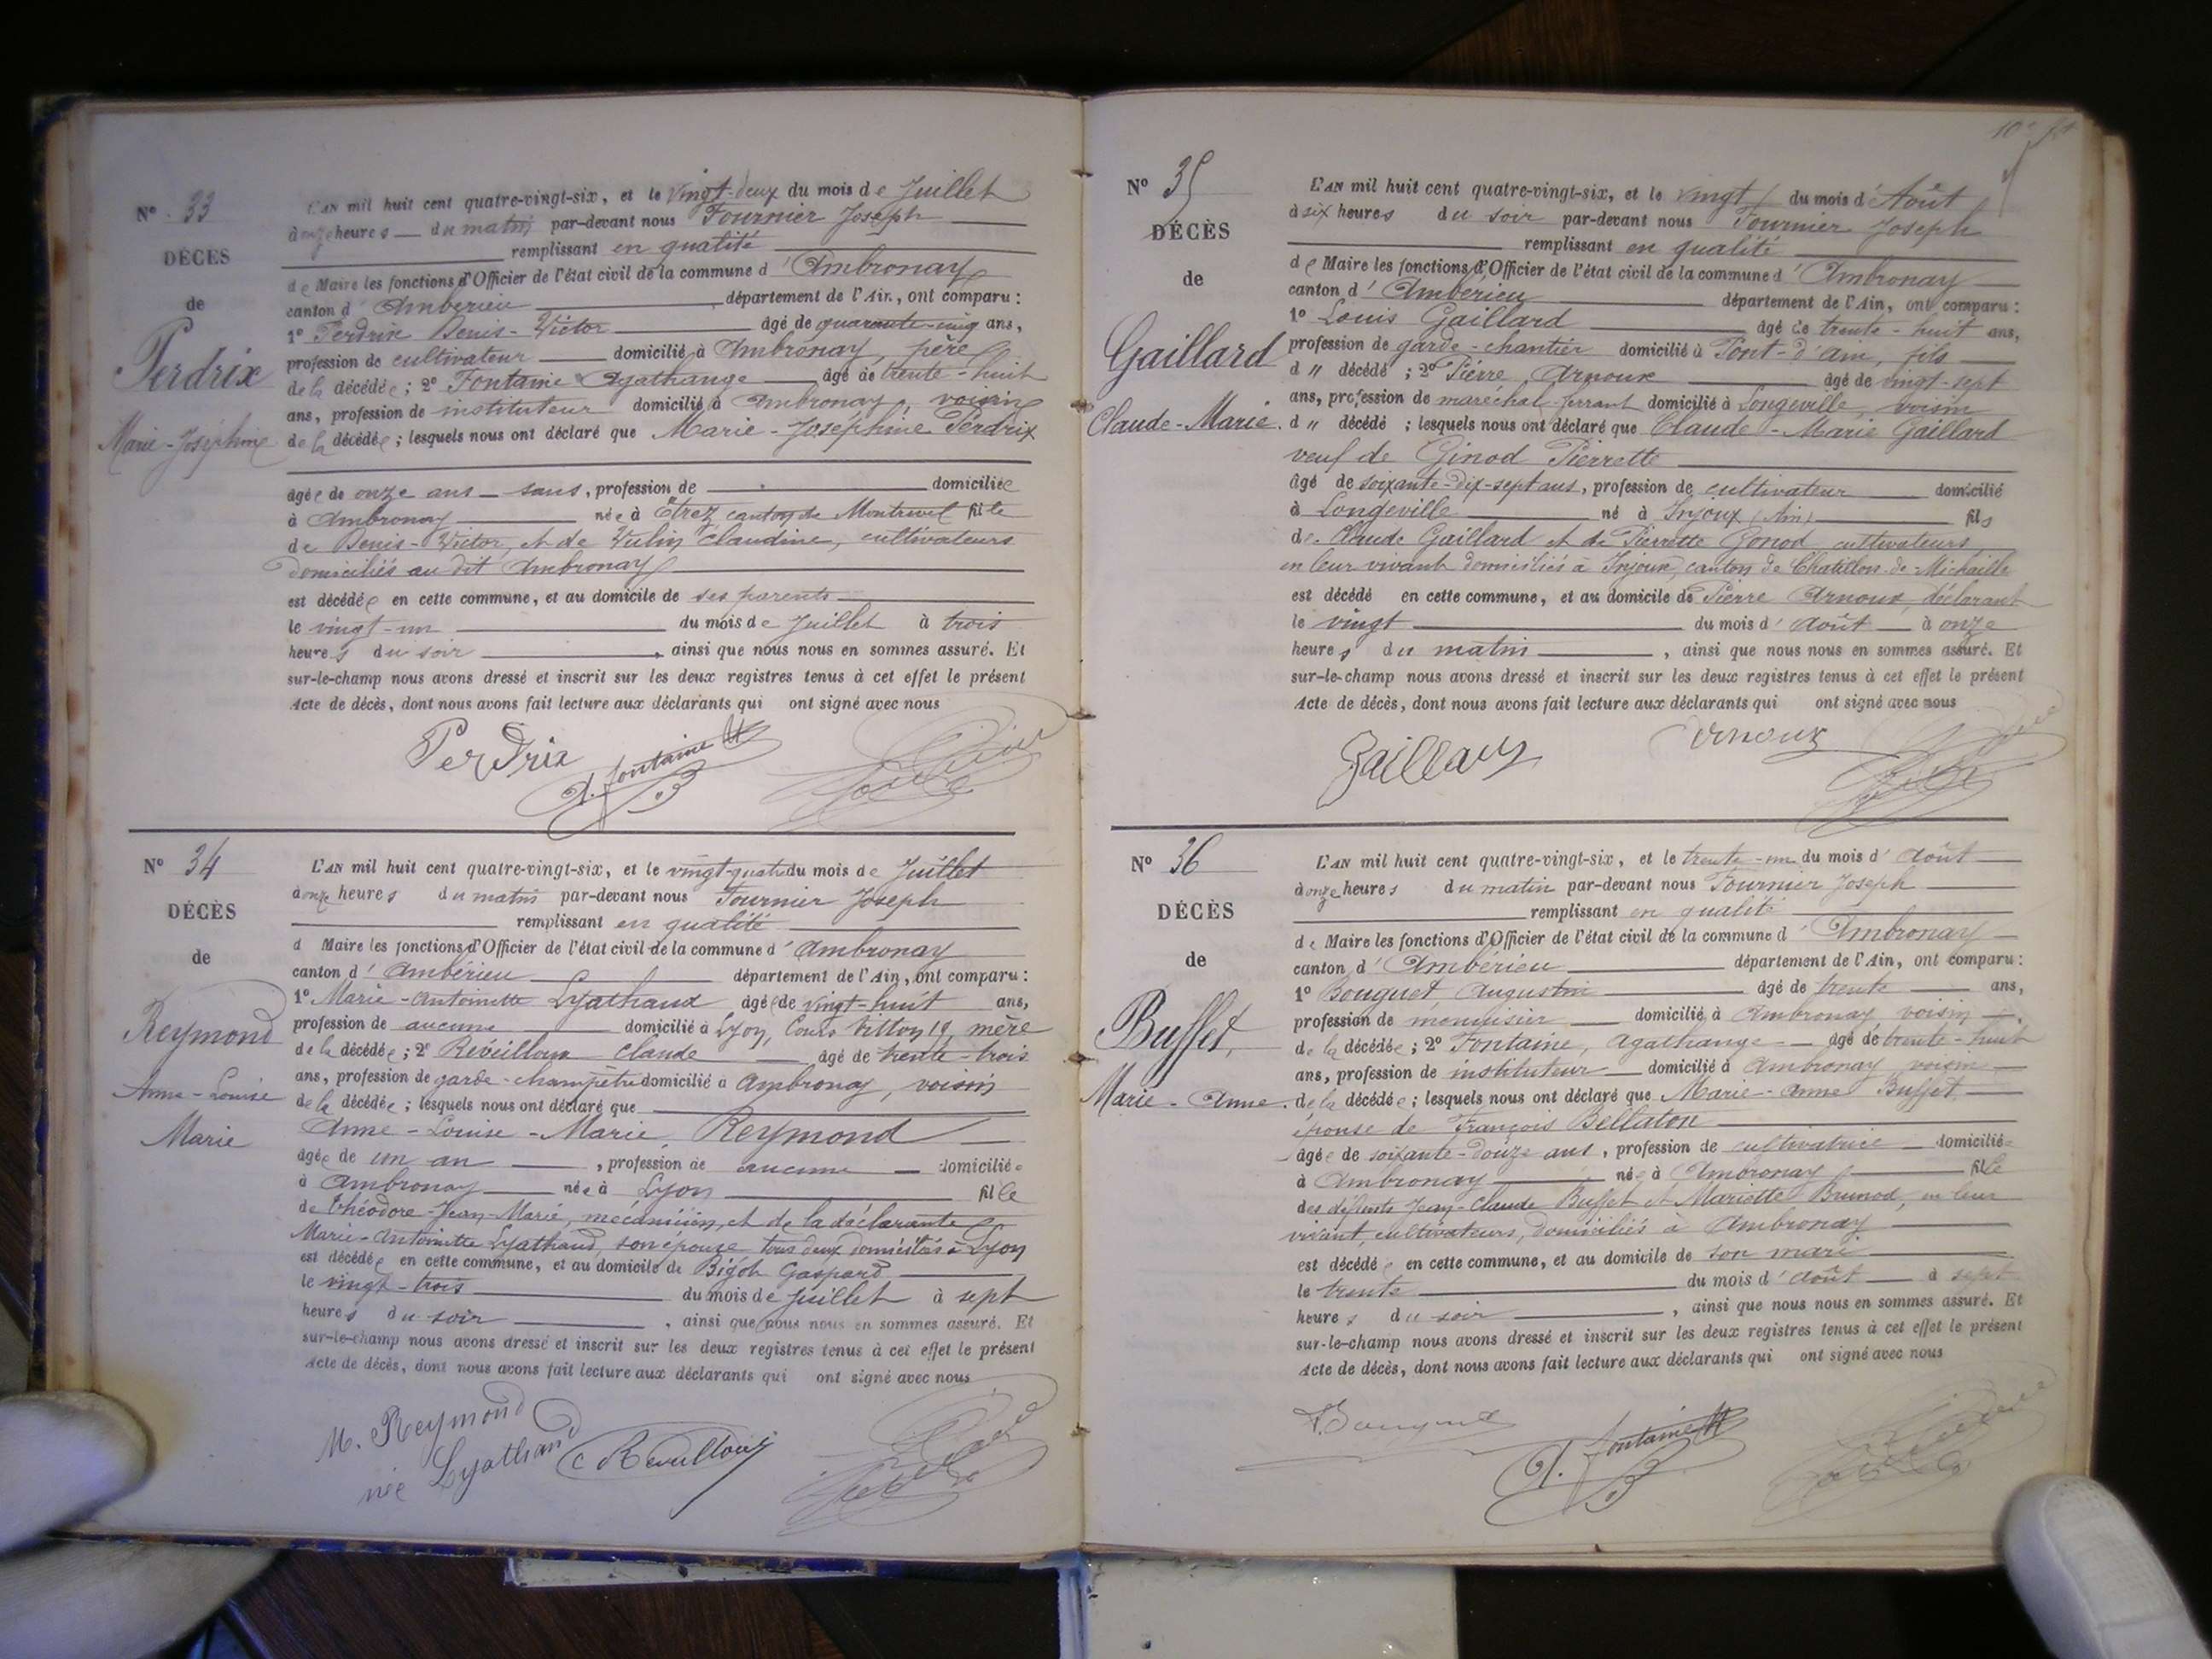 N° 33
DÉCÈS
de
Perdrix
Marie-Joséphine
L'AN mil huit cent quatre-vingt-six, et le vingt-deux du mois de Juillet
à onze heures du matin par-devant nous Fournier Joseph
remplissant en qualité
de Maire les fonctions d'Officier de l'état civil de la commune d'Ambronay
canton d'Ambérieu département de l'Ain, ont comparu :
1° Perdrix Denis-Victor âgé de quarante-cinq ans,
profession de cultivateur domicilié à Ambronay, père
de la décédée ; 2° Fontaine Agathange âgé de trente-huit
ans, profession de instituteur domicilié à Ambronay, voisin
de la décédée ; lesquels nous ont déclaré que Marie-Joséphine Perdrix
âgée de onze ans sans, profession de domiciliée
à Ambronay née à Étrez canton de Montrevel fille
de Denis-Victor, et de Vulin Claudine, cultivateurs
domiciliés au dit Ambronay
est décédée en cette commune, et au domicile de ses parents
le vingt-un du mois de Juillet à trois
heures du soir, ainsi que nous nous en sommes assuré. Et
sur-le-champ nous avons dressé et inscrit sur les deux registres tenus à cet effet le présent
Acte de décès, dont nous avons fait lecture aux déclarants qui ont signé avec nous
Perdrix
A. fontaine
N° 34
DÉCÈS
de
Reymond
Anne-Louise
Marie
L'AN mil huit cent quatre-vingt-six, et le vingt-quatre du mois de Juillet
à onze heures du matin par-devant nous Fournier Joseph
remplissant en qualité
d Maire les fonctions d'Officier de l'état civil de la commune d'Ambronay
canton d'Ambérieu département de l'Ain, ont comparu :
1° Marie-Antoinette Lyathaud âgée de vingt-huit ans,
profession de aucune domicilié à Lyon, Cours Vitton 19, mère
de la décédée ; 2° Réveilloux Claude âgé de trente-trois
ans, profession de garde-champêtre domicilié à Ambronay, voisin
de la décédée ; lesquels nous ont déclaré que
Anne-Louise-Marie Reymond
âgée de un an, profession de aucune domiciliée
à Ambronay née à Lyon fille
de Théodore-Jean-Marie, mécanicien, et de la déclarante
Marie-Antoinette Lyathaud, son épouse tous deux domiciliés à Lyon
est décédée en cette commune, et au domicile de Bigot Gaspard
le vingt-trois du mois de Juillet à sept
heures du soir, ainsi que nous nous en sommes assuré. Et
sur-le-champ nous avons dressé et inscrit sur les deux registres tenus à cet effet le présent
Acte de décès, dont nous avons fait lecture aux déclarants qui ont signé avec nous
M. Reymond
née Lyathaud
N° 35
DÉCÈS
de
Gaillard
Claude-Marie.
L'AN mil huit cent quatre-vingt-six, et le vingt du mois d'Août
à six heures du soir par-devant nous Fournier Joseph
remplissant en qualité
de Maire les fonctions d'Officier de l'état civil de la commune d'Ambronay
canton d'Ambérieu département de l'Ain, ont comparu :
1° Louis Gaillard âgé de trente-huit ans,
profession de garde-chantier domicilié à Pont-d'ain, fils
d " décédé ; 2° Pierre Arnoux âgé de vingt-sept
ans, profession de maréchal-ferrant domicilié à Longeville, voisin
d " décédé ; lesquels nous ont déclaré que Claude-Marie Gaillard
veuf de Ginod Pierrette
âgé de soixante-dix-sept ans, profession de cultivateur domicilié
à Longeville né à Injoux (Ain) fils
de Claude Gaillard et de Pierrette Gonod cultivateurs
en leur vivant domiciliés à Injoux, canton de Chatillon-de-Michaille
est décédé en cette commune, et au domicile de Pierre Arnoux, déclarant
le vingt du mois d'août à onze
heures du matin, ainsi que nous nous en sommes assuré. Et
sur-le-champ nous avons dressé et inscrit sur les deux registres tenus à cet effet le présent
Acte de décès, dont nous avons fait lecture aux déclarants qui ont signé avec nous
Gaillard Arnoux
N° 36
DÉCÈS
de
Buffet,
Marie-Anne.
L'AN mil huit cent quatre-vingt-six, et le trente-un du mois d'août
à onze heures du matin par-devant nous Fournier Joseph
remplissant en qualité
de Maire les fonctions d'Officier de l'état civil de la commune d'Ambronay
canton d'Ambérieu département de l'Ain, ont comparu :
1° Bouguet, Augustin âgé de trente ans,
profession de menuisier domicilié à Ambronay voisin
de la décédée ; 2° Fontaine, Agathange âgé de trente-huit
ans, profession de instituteur domicilié à Ambronay voisin
de la décédée ; lesquels nous ont déclaré que Marie-Anne Buffet,
épouse de François Bellaton
âgée de soixante-douze ans, profession de cultivatrice domiciliée
à Ambronay née à Ambronay fille
des défunts Jean-Claude Buffet et Mariette Brunod, en leur
vivant, cultivateurs, domiciliés à Ambronay
est décédée en cette commune, et au domicile de son mari
le trente du mois d'août à sept
heures du soir, ainsi que nous nous en sommes assuré. Et
sur-le-champ nous avons dressé et inscrit sur les deux registres tenus à cet effet le présent
Acte de décès, dont nous avons fait lecture aux déclarants qui ont signé avec nous
A. fontaine